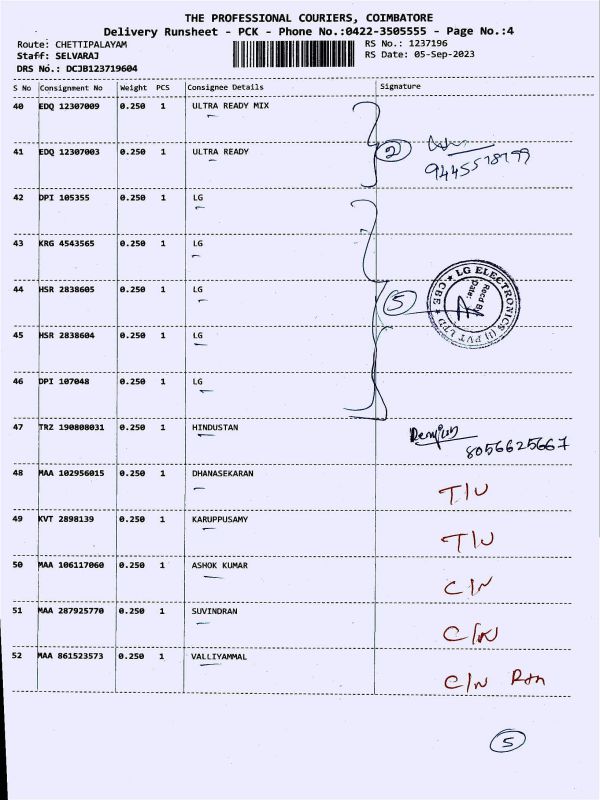 THE PROFESSIONAL COURIERS, COIMBATORE
Delivery Runsheet - PCK - Phone No.:0422-3505555 - Page No.:4
Route: CHETTIPALAYAM RS No.: 1237196
Staff: SELVARAJ RS Date: 05-Sep-2023
DRS No.: DCJB123719604
S No Consignment No Weight PCS Consignee Details Signature
40 EDQ 12307009 0.250 1 ULTRA READY MIX
41 EDQ 12307003 0.250 1 ULTRA READY
2
42 DPI 105355 0.250 1 LG
43 KRG 4543565 0.250 1 LG
44 HSR 2838605 0.250 1 LG
5
LG ELECTRONICS (I) PVT LTD ★ CBE ★
Recd By
Date:
45 HSR 2838604 0.250 1 LG
46 DPI 107048 0.250 1 LG
47 TRZ 190808031 0.250 1 HINDUSTAN
8056625667
48 MAA 102956015 0.250 1 DHANASEKARAN T/U
49 KVT 2898139 0.250 1 KARUPPUSAMY T/U
50 MAA 106117060 0.250 1 ASHOK KUMAR C/N
51 MAA 287925770 0.250 1 SUVINDRAN C/N
52 MAA 861523573 0.250 1 VALLIYAMMAL C/N
5